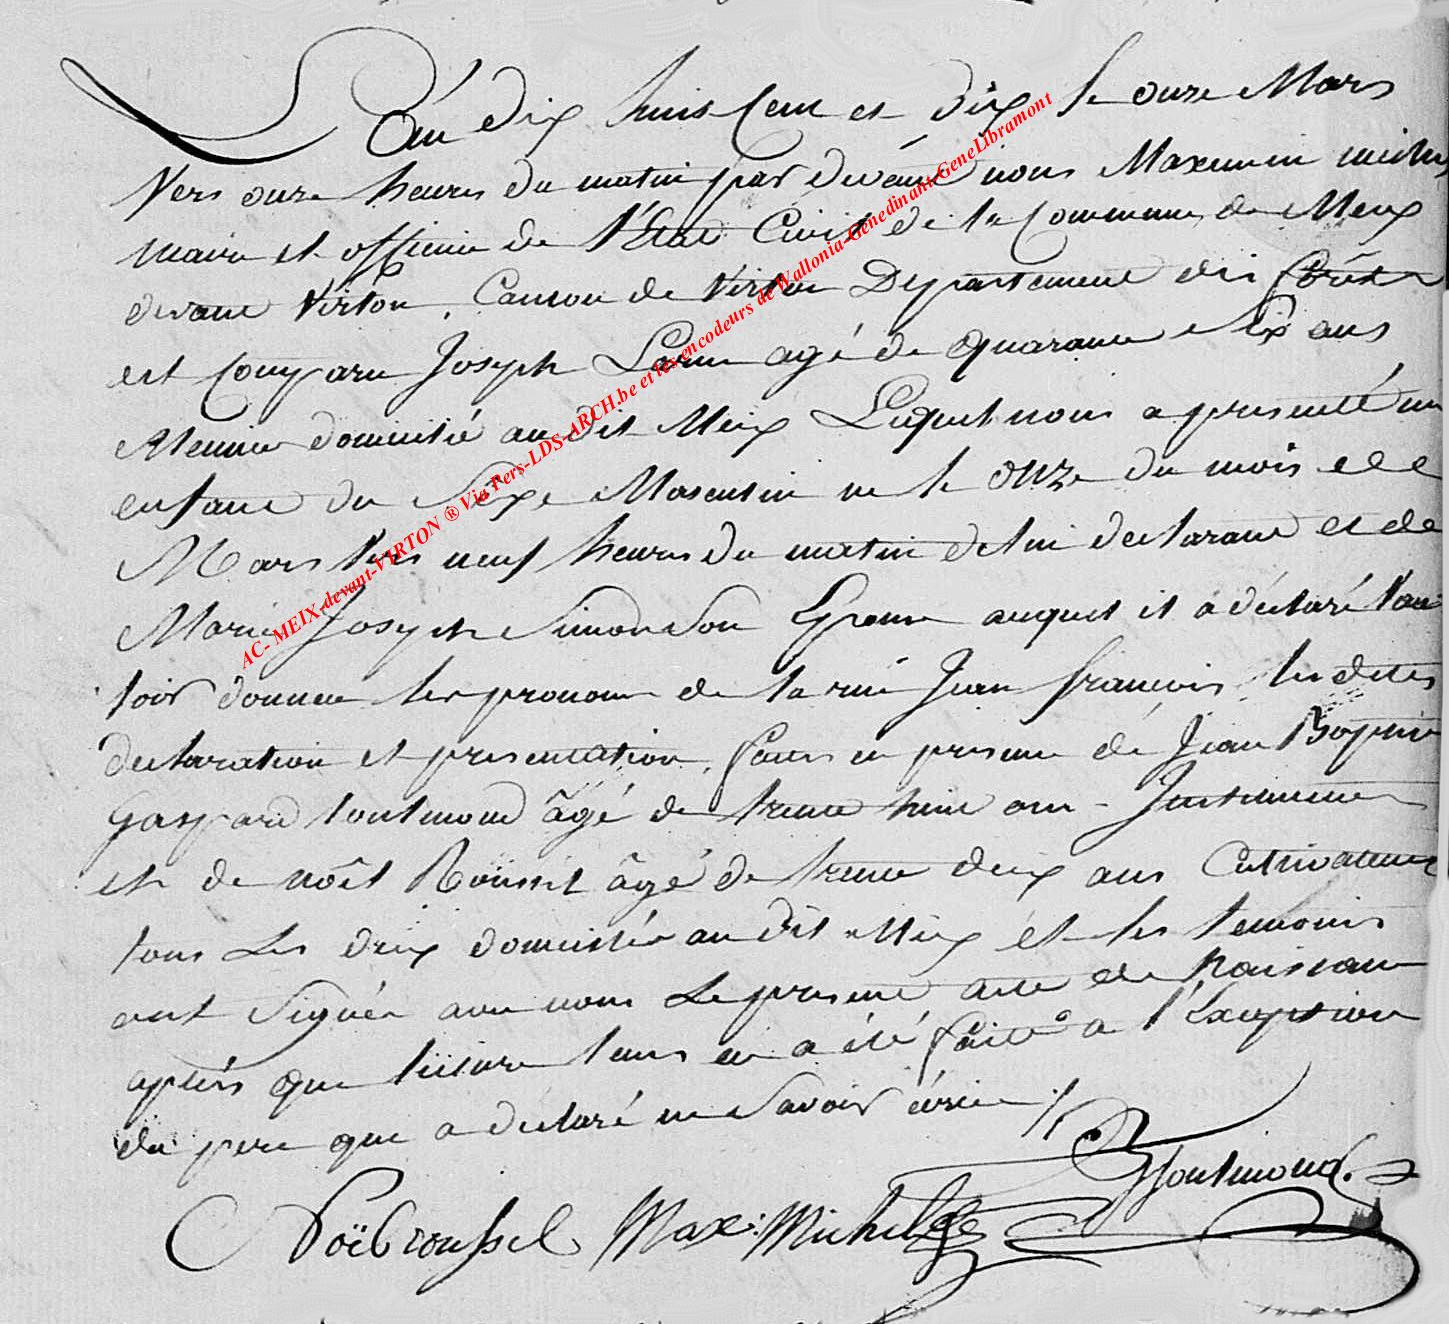 L'an dix huit Cent et dix le onze Mars
Vers onze heures du matin par devant nous Maximin michel
maire et officier de l'Etat Civil de la Commune de Meix
devant Virton, Canton de Virton Departement des forêts
est Comparu Joseph agé de quarante Six ans
domicilié au dit Meix Lequel nous a presenté un
enfant du Sexe Masculin né le onze du mois de
Mars Vers neuf heures du matin de lui declarant et de
Marie Joseph Simon Son Epouse auquel il a déclaré Vou
loir donner les prenoms de Jean françois, les dites
declaration et presentation faites en presence de Jean Baptiste
Gaspard toutmond âgé de trente huit ans Instituteur
et de noël Roussel âgé de trente deux ans Cultivateur
tous Les deux domiciliés au dit Meix et les temoins
ont Signés avec nous Le present acte de Naissance
après que lecture leurs en a été faite a l'Exception
du pere que a declaré ne Savoir écrire ./.
toutmond.
Noël roussel Max: Michel
AC- MEIX-devant-VIRTON ® Via Pers-LDS-ARCH.be et les encodeurs de Wallonia-Genedinant-GeneLibramont